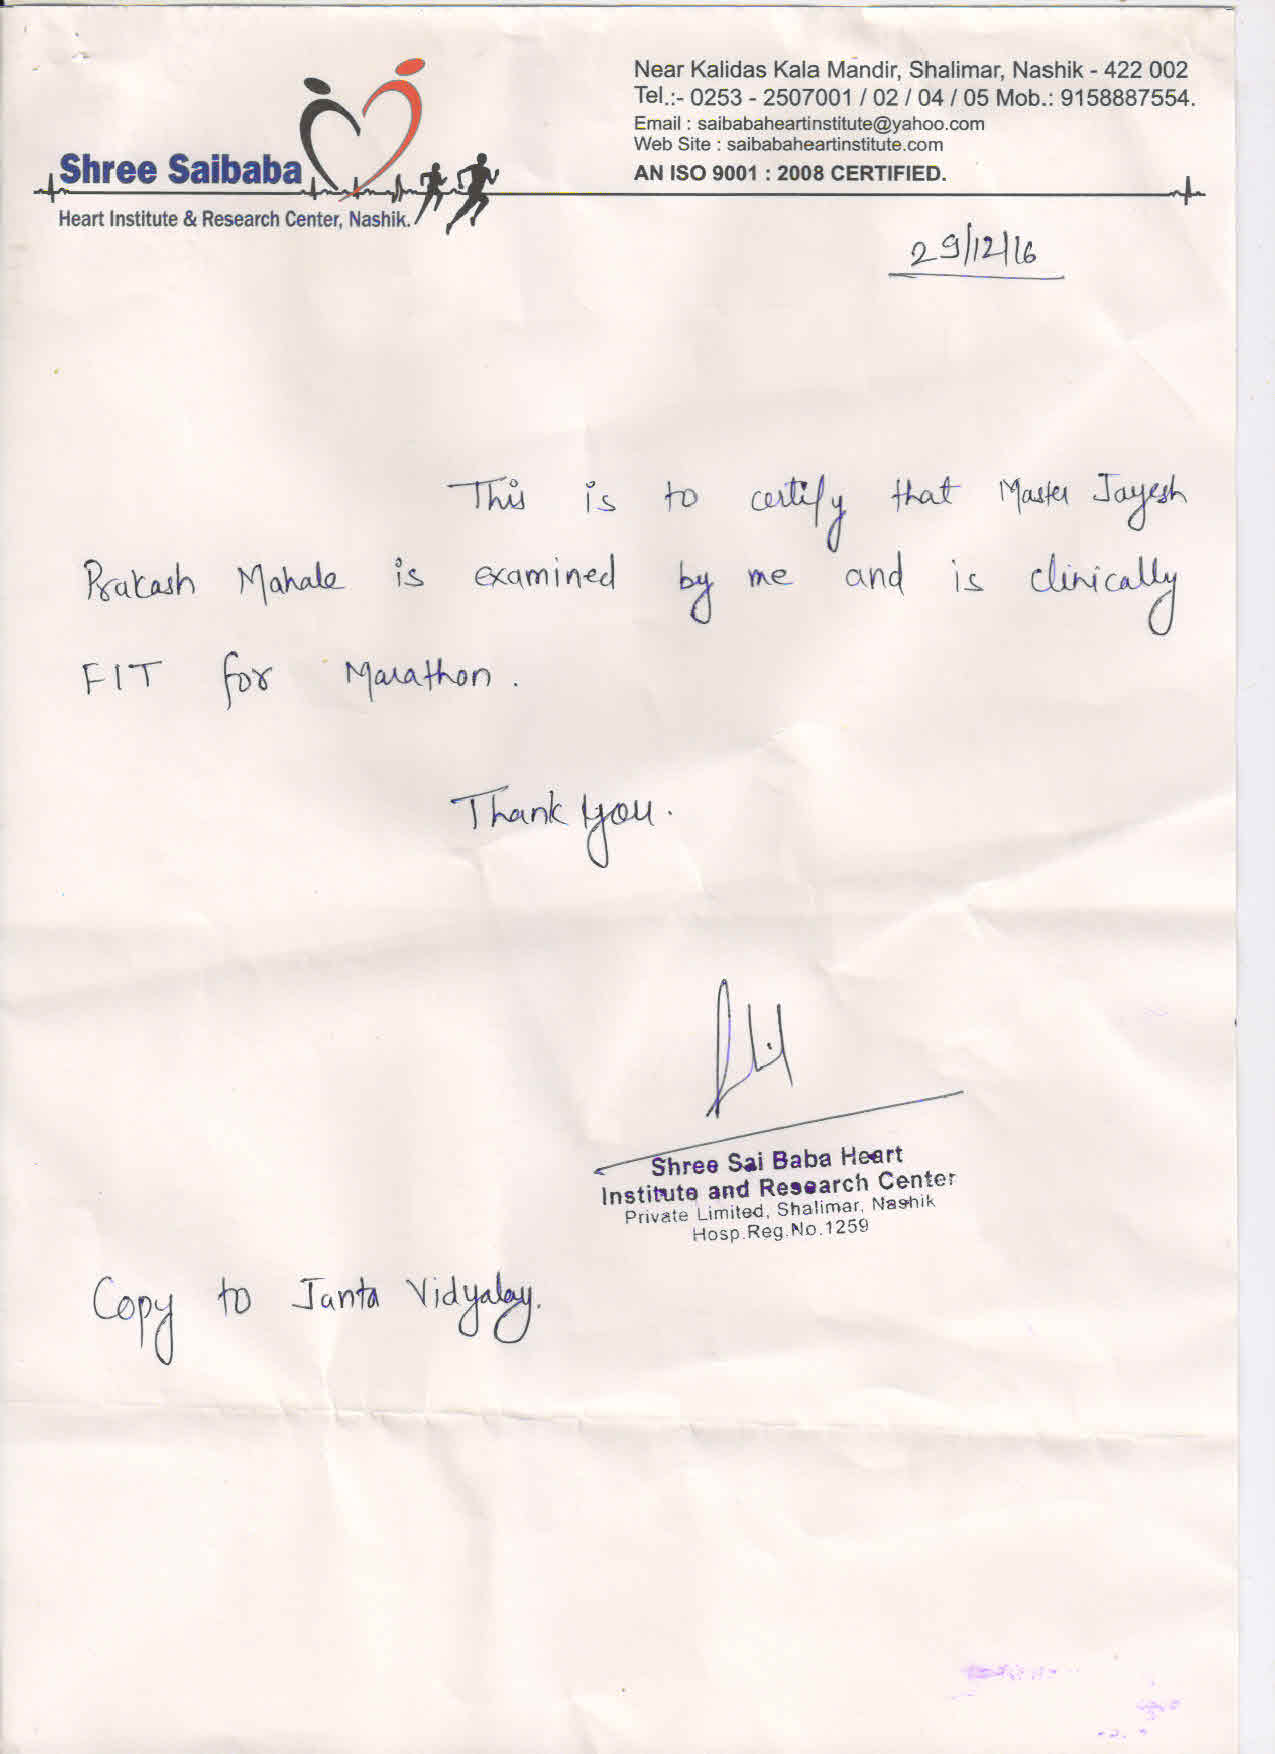 Near Kalidas Kala Mandir, Shalimar, Nashik - 422 002
Tel.:- 0253 - 2507001 / 02 / 04 / 05 Mob.: 9158887554.
Email : saibabaheartinstitute@yahoo.com
Web Site : saibabaheartinstitute.com
AN ISO 9001 : 2008 CERTIFIED.
Shree Saibaba
Heart Institute & Research Center, Nashik.
29/12/16
This is to certify that Master Jayesh
Prakash Mahale is examined by me and is clinically
FIT for Marathon.
Thank you.
Shree Sai Baba Heart
Institute and Research Center
Private Limited, Shalimar, Nashik
Hosp.Reg.No.1259
Copy to Janta Vidyalay.